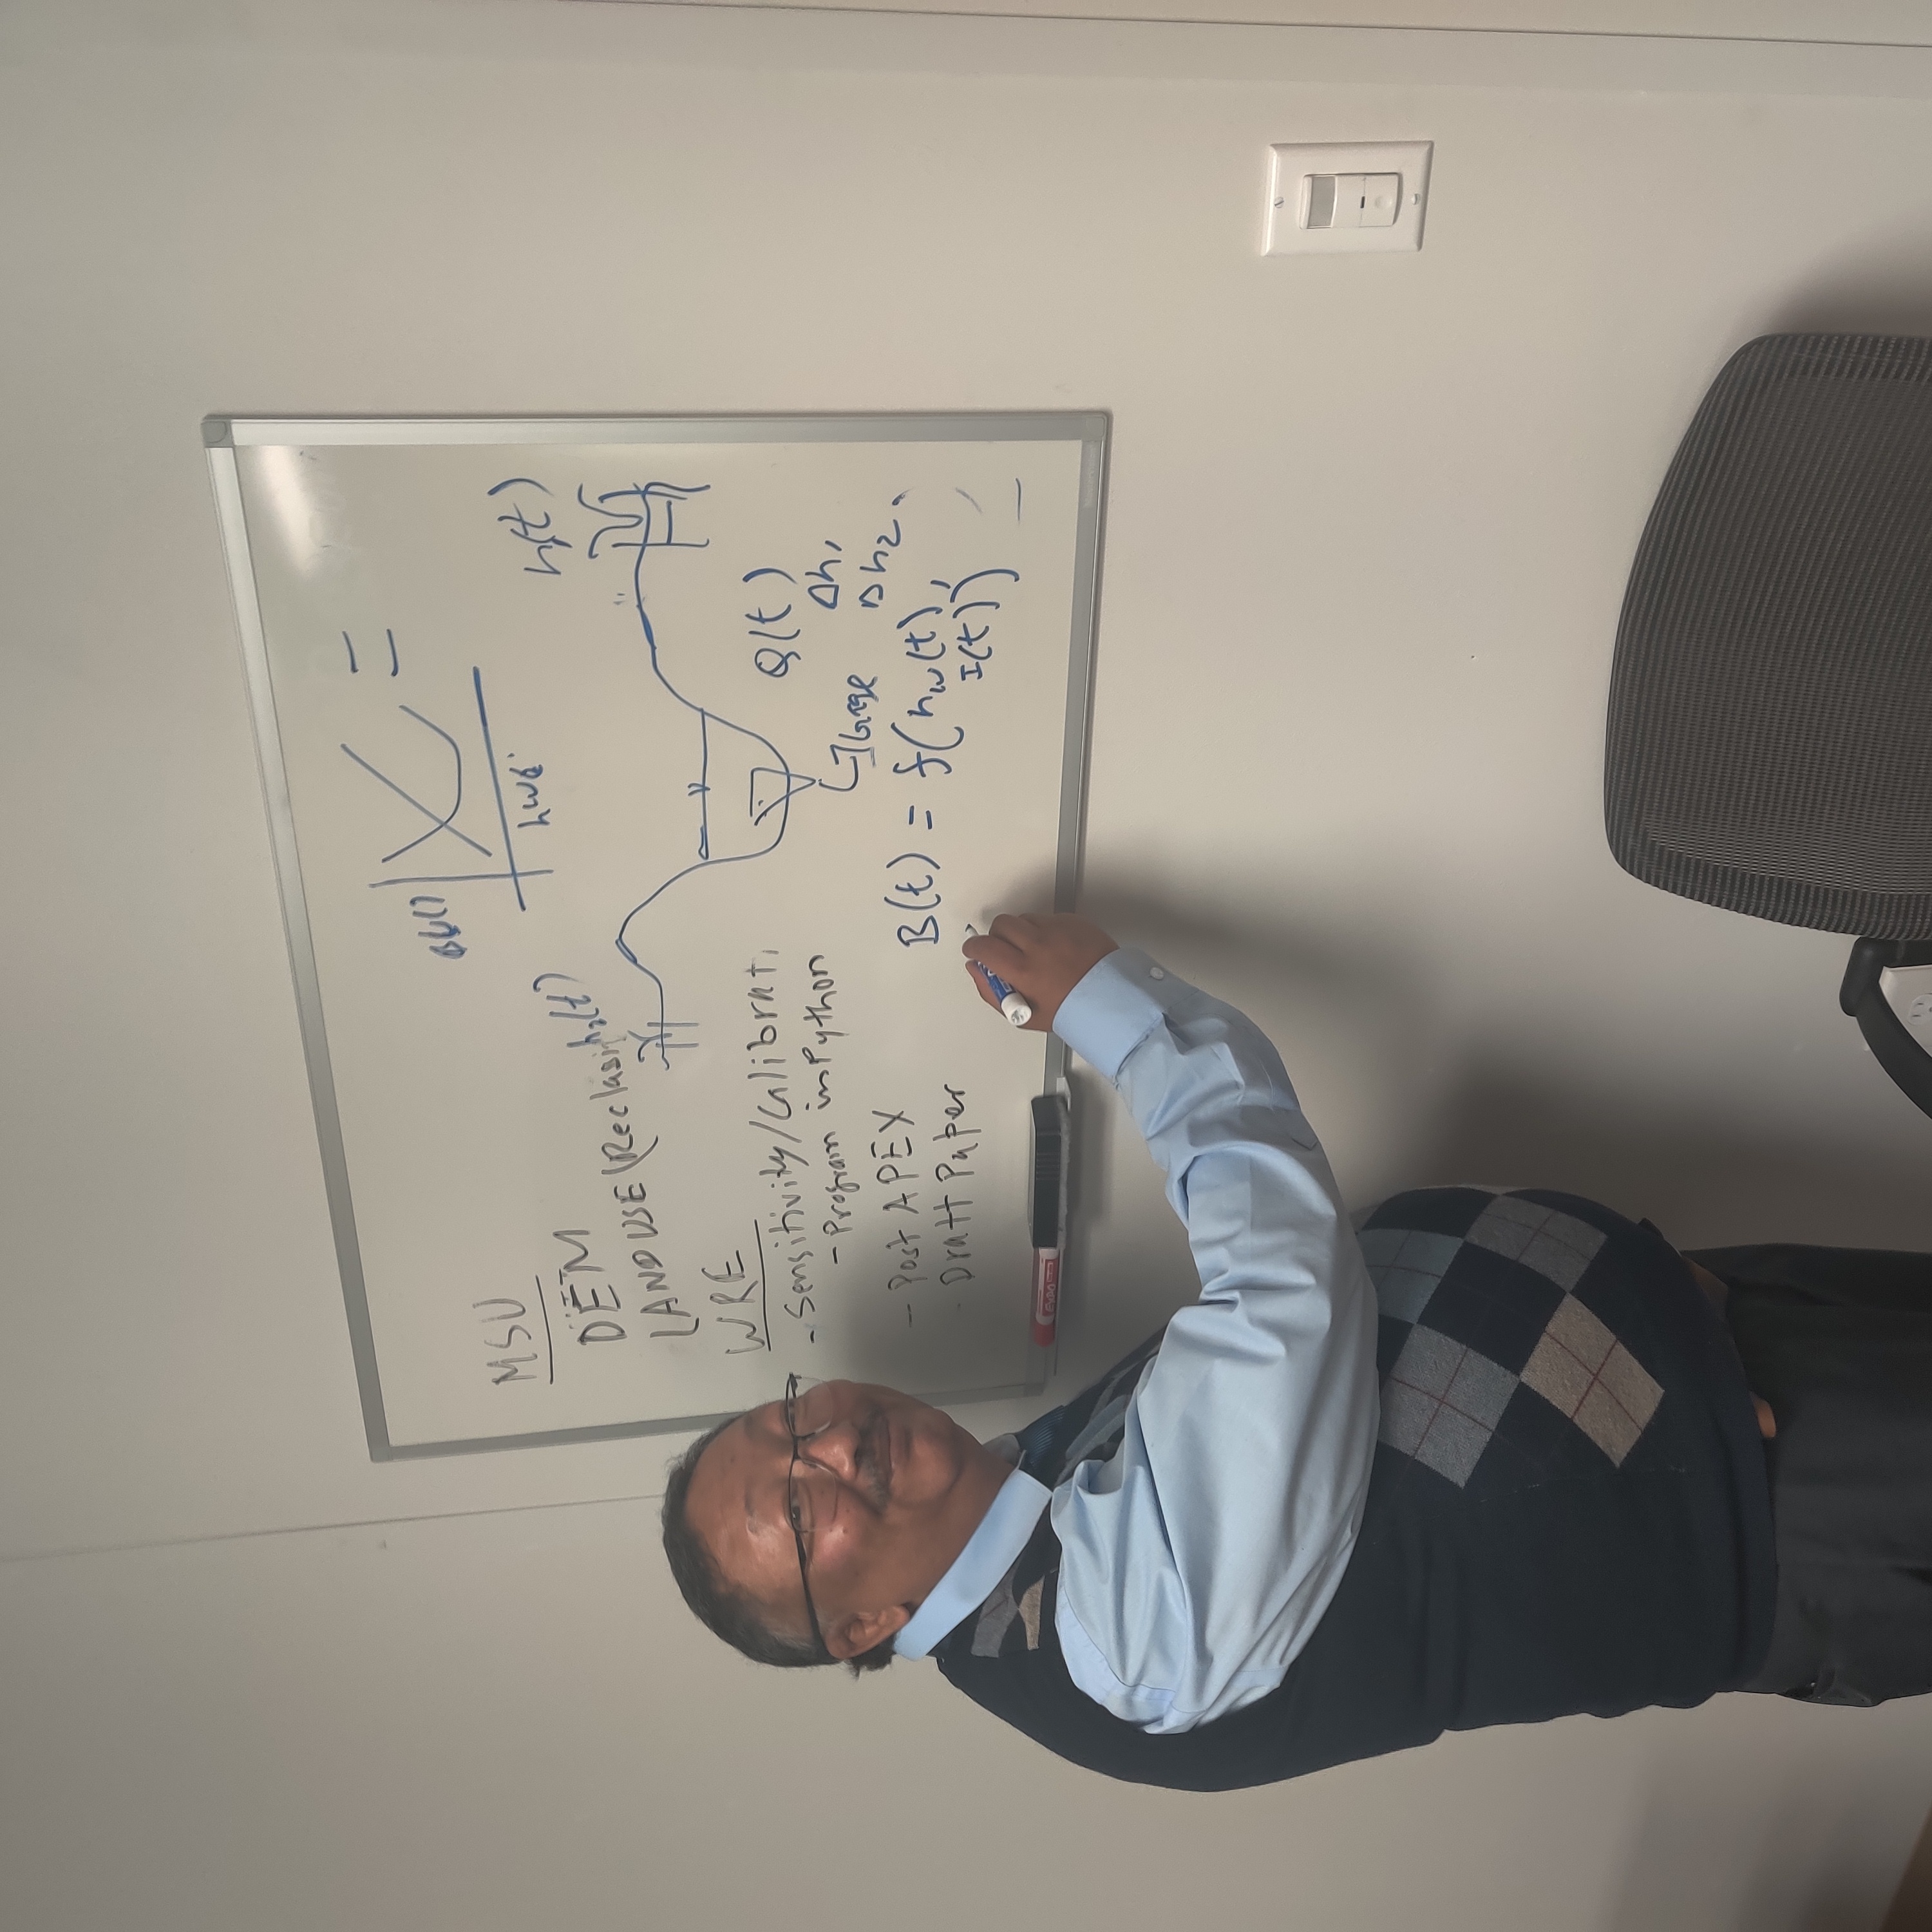 MSU
DEM
LANDUSE (Reclasi
WRE
- Sensitivity/Calibrati
- Program in Python
- Post APEX
- Dratt Paper
h₂(t)
=
h₁(t)
Q(t)
Δh₁
Δh₂.
B(t) = f(hw(t),
I(t))
EXPO